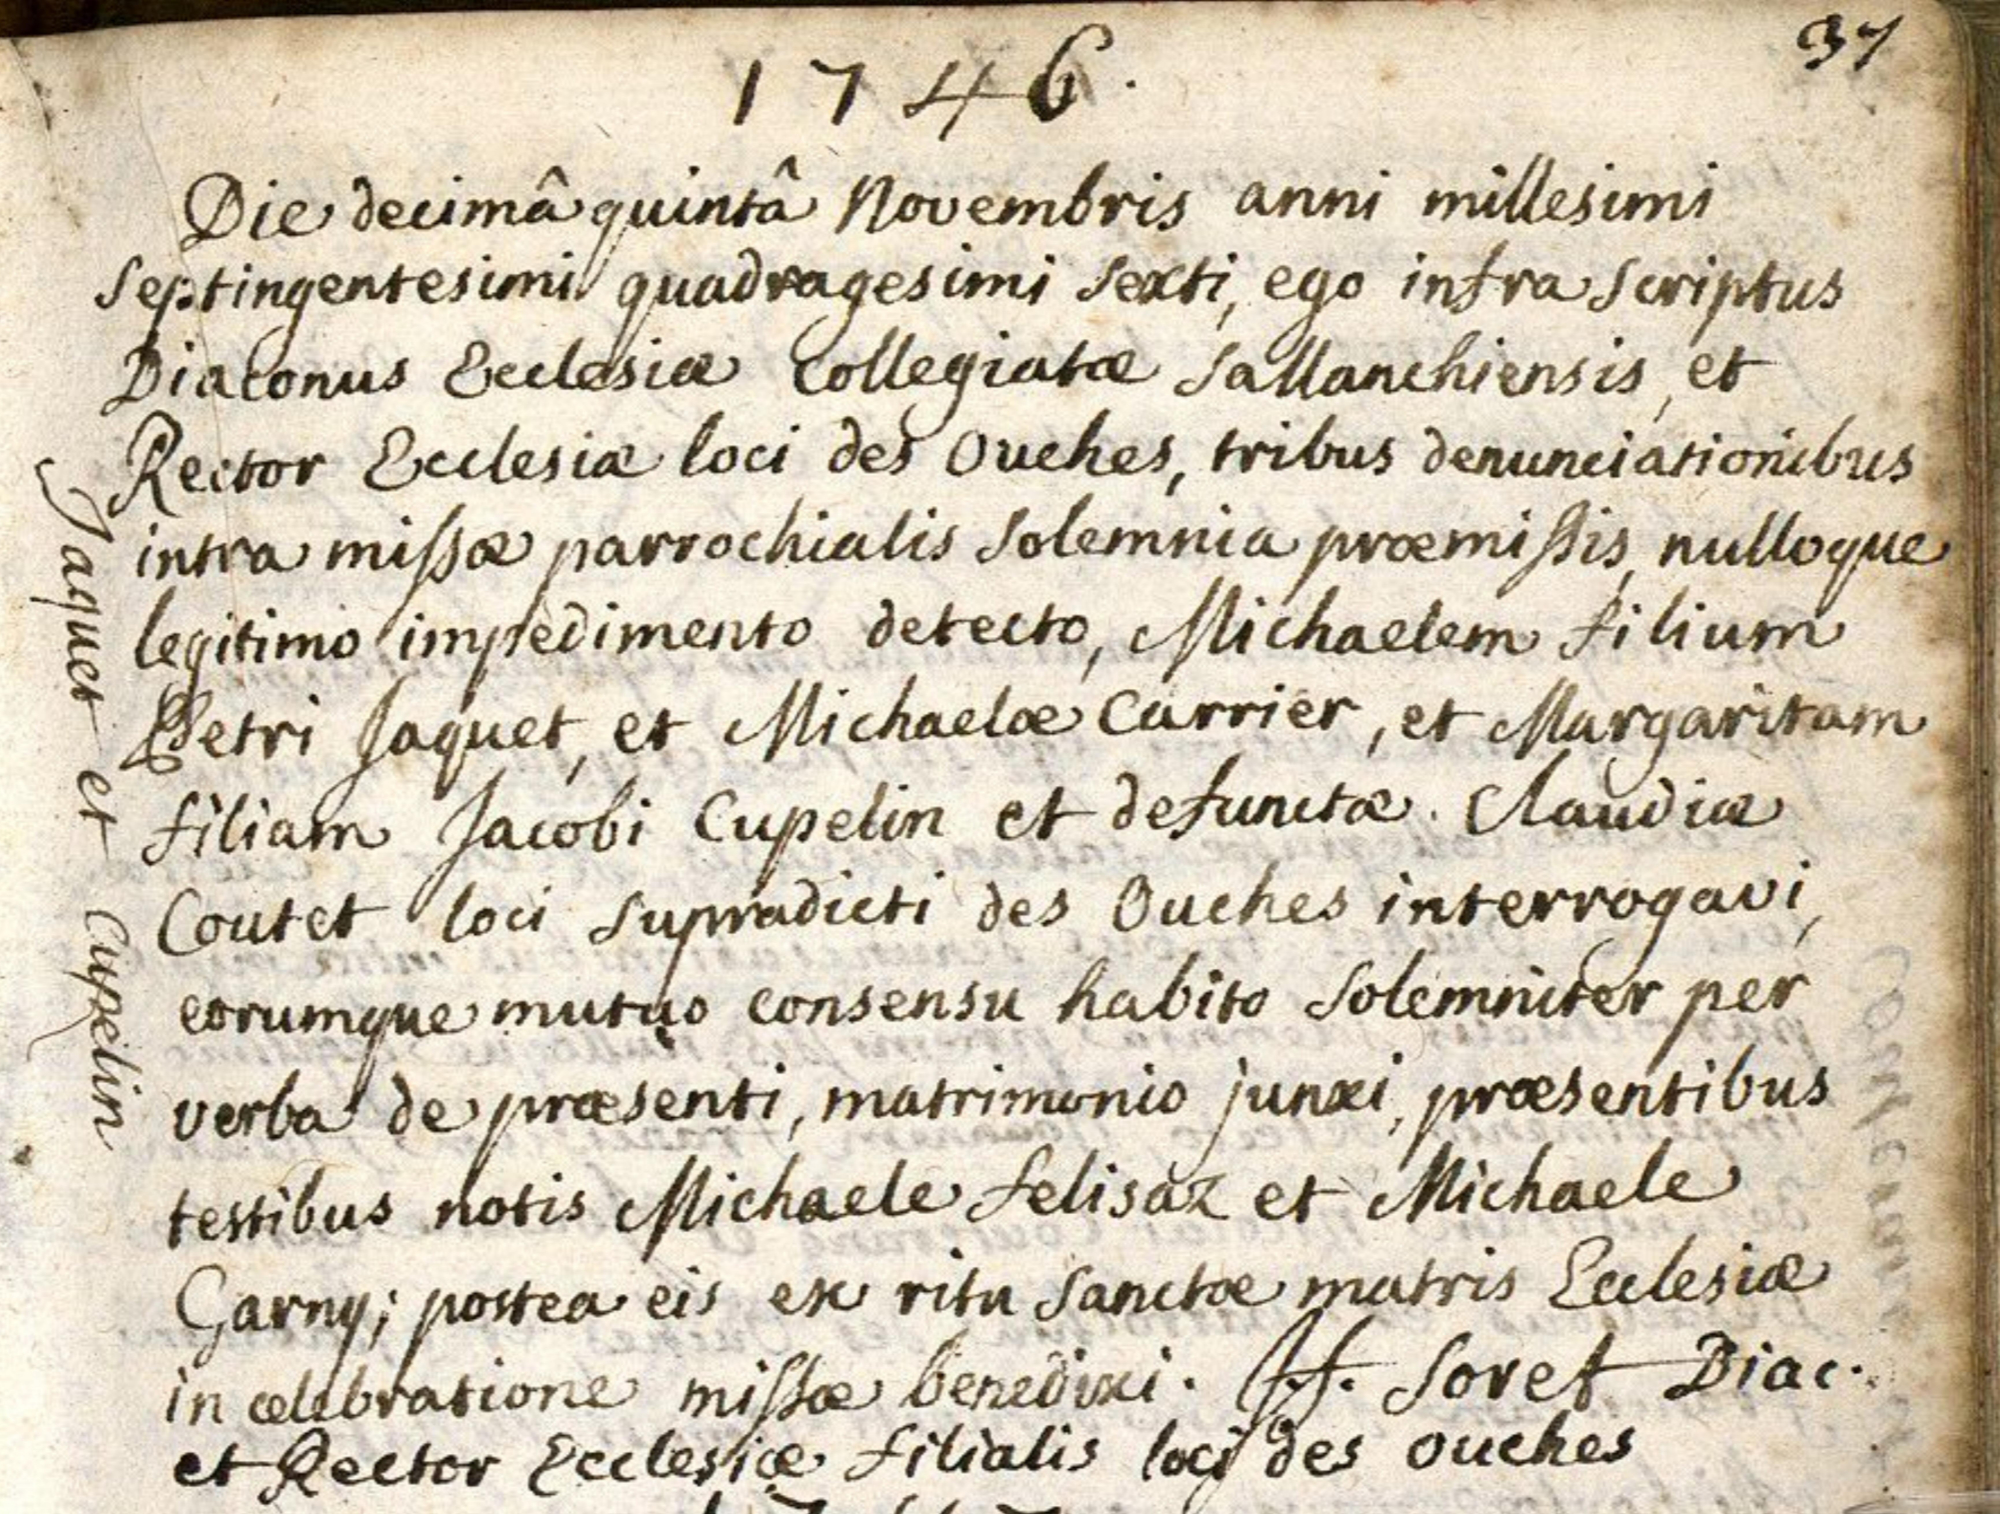 37
1746.
Die decimâ quintâ Novembris anni millesimi
septingentesimi quadragesimi sexti, ego infra scriptus
Diaconus Ecclesiæ Collegiatæ Sallanchiensis, et
Rector Ecclesiæ loci des Ouches, tribus denunciationibus
intra missæ parrochialis solemnia præmissis, nulloque
legitimo impedimento detecto, Michaelem filium
Petri Jaquet, et Michaelæ Carrier, et Margaritam
filiam Jacobi Cupelin et defunctæ. Claudiæ
Coutet loci supradicti des Ouches interrogavi,
eorumque mutuo consensu habito solemniter per
verba de præsenti, matrimonio junxi, præsentibus
testibus notis Michaele felisaz et Michaele
Garny; postea eis ex ritu sanctæ matris Ecclesiæ
in celebratione missæ benedixi. Soret Diac.
et Rector Ecclesiæ filialis loci des Ouches
Jaquet et Cupelin